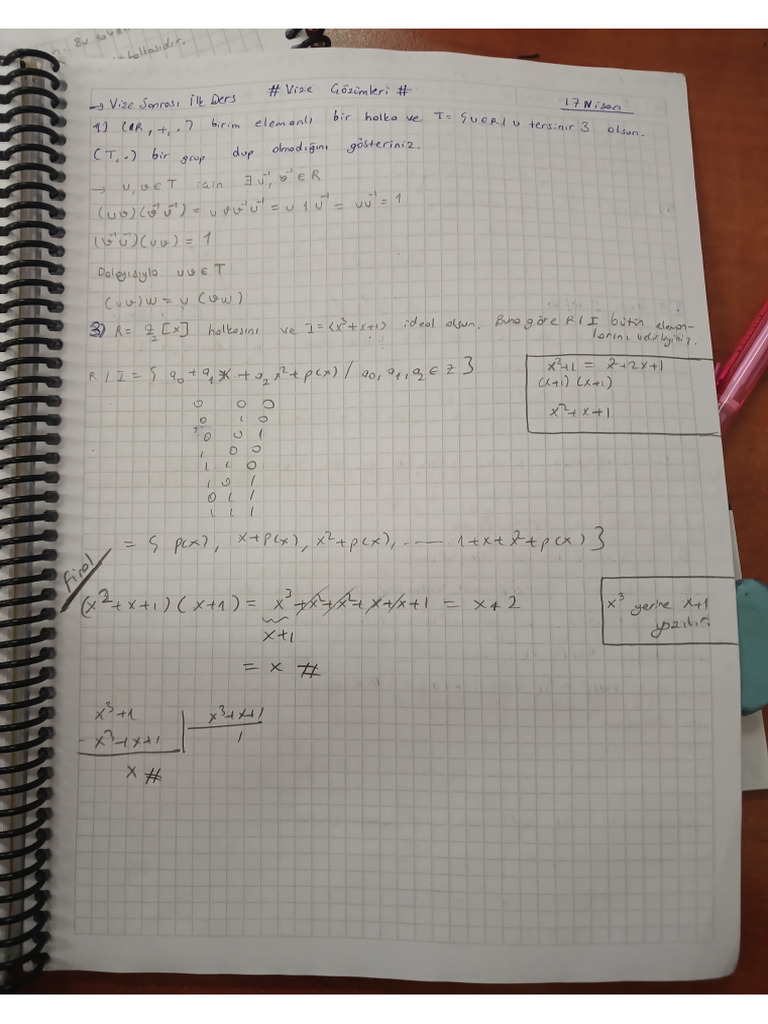 Bu
halkasıdır.
# Vize Çözümleri #
→ Vize Sonrası ilk Ders
17 Nisan
1) (R, +, .) birim elemanlı bir halka ve T = { u ∈ R | u tersinir } olsun.
(T, .) bir grup olup olmadığını gösteriniz.
→ u, v ∈ T için ∃ u⁻¹, v⁻¹ ∈ R
(uv)(v⁻¹u⁻¹) = u v v⁻¹ u⁻¹ = u 1 u⁻¹ = uu⁻¹ = 1
(v⁻¹u⁻¹)(uv) = 1
Dolayısıyla uv ∈ T
(uv)w = u(vw)
3) R = Z₂[x] halkasını ve I = <x³+x+1> ideal olsun. Buna göre R/I bütün eleman-
larını belirleyiniz.
R/I = { a₀ + a₁x + a₂x² + p(x) / a₀, a₁, a₂ ∈ Z }
x²+1 = x²+2x+1
(x+1) (x+1)
x²+x+1
0 0 0
0 1 0
0 0 1
1 0 0
1 1 0
1 0 1
0 1 1
1 1 1
= { p(x), x+p(x), x²+p(x), ...... 1+x+x²+p(x) }
Final
(x²+x+1)(x+1) = x³+x²+x²+x+x+1 = x+2
x+1
= x #
x³ yerine x+1
yazılır.
x³+1 | x³+x+1
- x³+x+1 | 1
x #